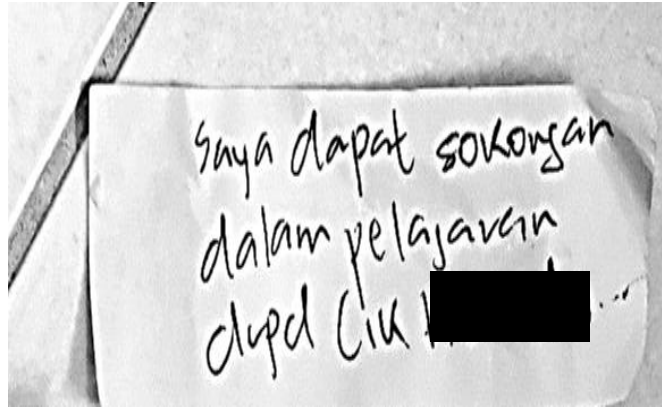 Saya dapat sokongan
dalam pelajaran
drpd Cik